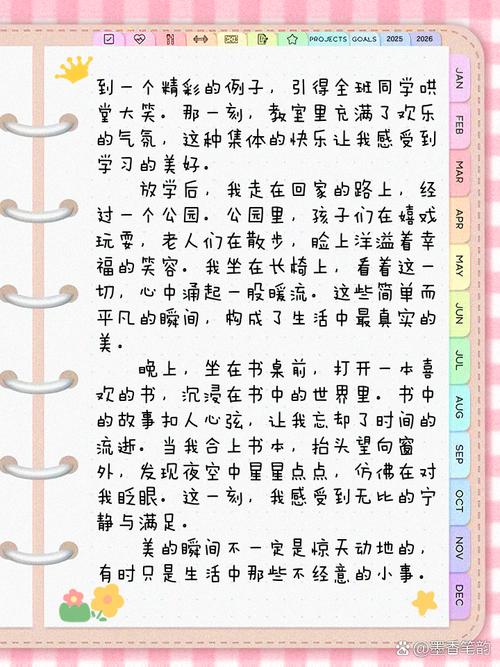 PROJECTS GOALS 2025 2026
到一个精彩的例子，引得全班同学哄
堂大笑。那一刻，教室里充满了欢乐
的气氛，这种集体的快乐让我感受到
学习的美好。
放学后，我走在回家的路上，经
过一个公园。公园里，孩子们在嬉戏
玩耍，老人们在散步，脸上洋溢着幸
福的笑容。我坐在长椅上，看着这一
切，心中涌起一股暖流。这些简单而
平凡的瞬间，构成了生活中最真实的
美。
晚上，坐在书桌前，打开一本喜
欢的书，沉浸在书中的世界里。书中
的故事扣人心弦，让我忘却了时间的
流逝。当我合上书本，抬头望向窗
外，发现夜空中星星点点，仿佛在对
我眨眼。这一刻，我感受到无比的宁
静与满足。
美的瞬间不一定是惊天动地的，
有时只是生活中那些不经意的小事。
JAN
FEB
MAR
APR
MAY
JUN
JUL
AUG
SEP
OCT
NOV
DEC
@墨香笔韵